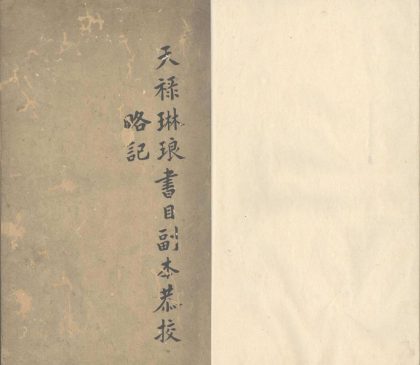 天禄琳琅書目副本恭挍
略記